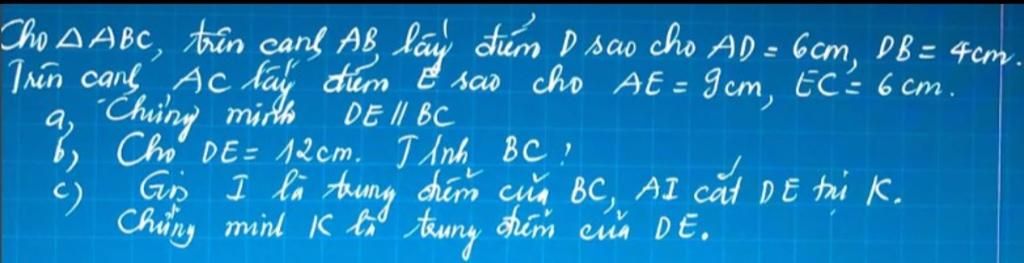 Cho △ABC, trên cạnh AB lấy điểm D sao cho AD = 6cm, DB = 4cm.
Trên cạnh AC lấy điểm E sao cho AE = 9cm, EC = 6cm.
a, Chứng minh DE // BC
b, Cho DE = 12cm. Tính BC ?
c) Gọi I là trung điểm của BC, AI cắt DE tại K.
Chứng minh K là trung điểm của DE.